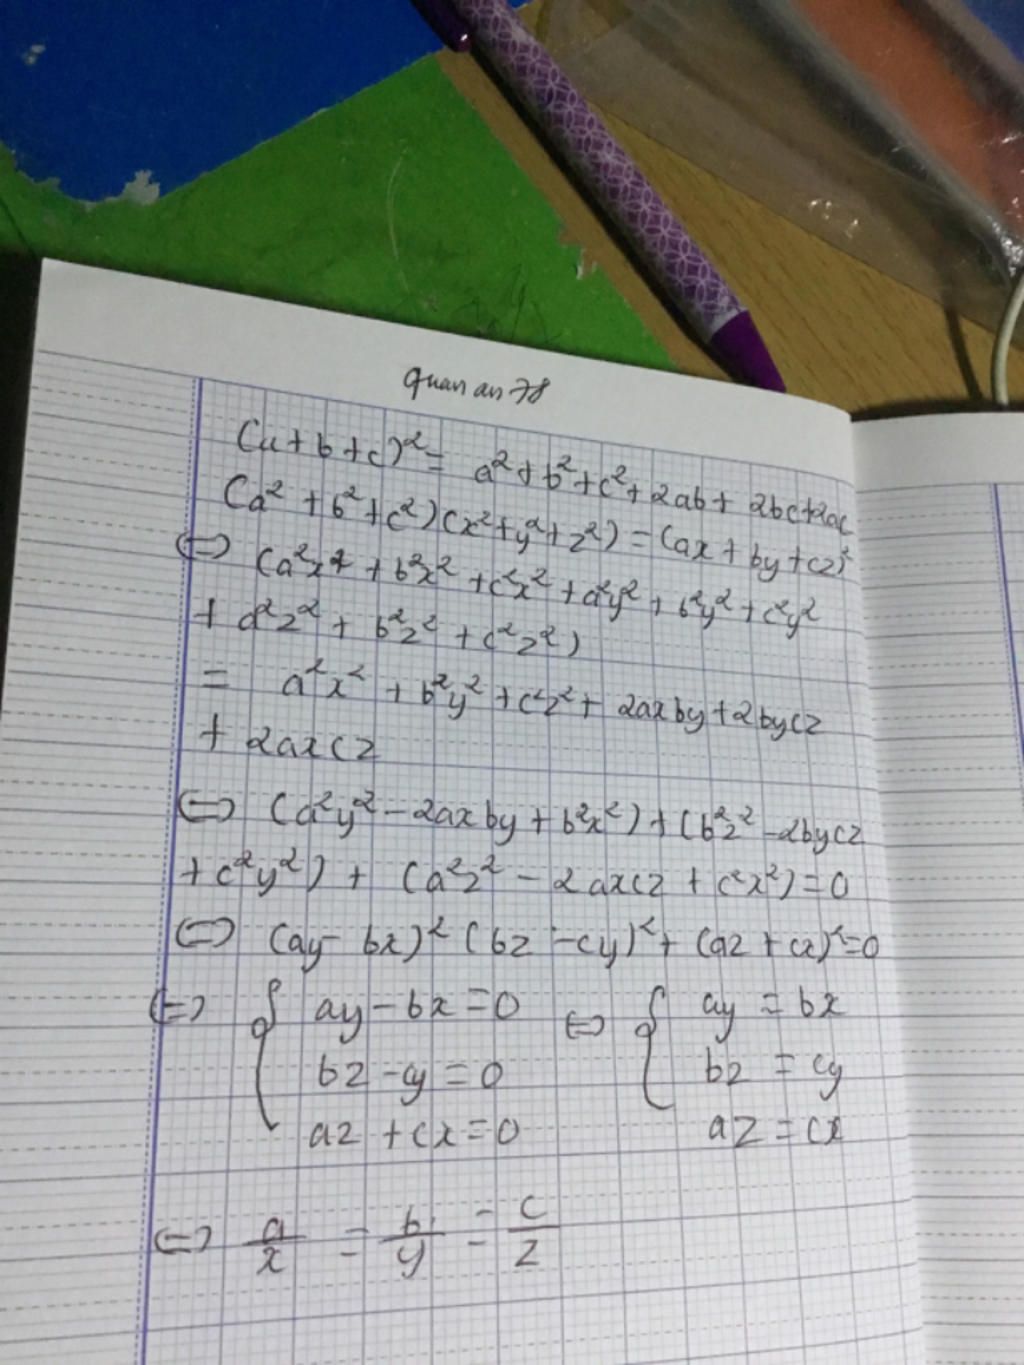 quan an 78
(a + b + c)² = a² + b² + c² + 2ab + 2bc + 2ac
(a² + b² + c²)(x² + y² + z²) = (ax + by + cz)²
⇔ (a²x² + b²x² + c²x² + a²y² + b²y² + c²y²
+ a²z² + b²z² + c²z²)
= a²x² + b²y² + c²z² + 2axby + 2bycz
+ 2axcz
⇔ (a²y² - 2axby + b²x²) + (b²z² - 2bycz
+ c²y²) + (a²z² - 2axcz + c²x²) = 0
⇔ (ay - bx)² (bz - cy)² + (az + cx)² = 0
⇔ { ay - bx = 0 ⇔ { ay = bx
bz - cy = 0 bz = cy
az + cx = 0 az = cx
⇔ a/x = b/y = c/z